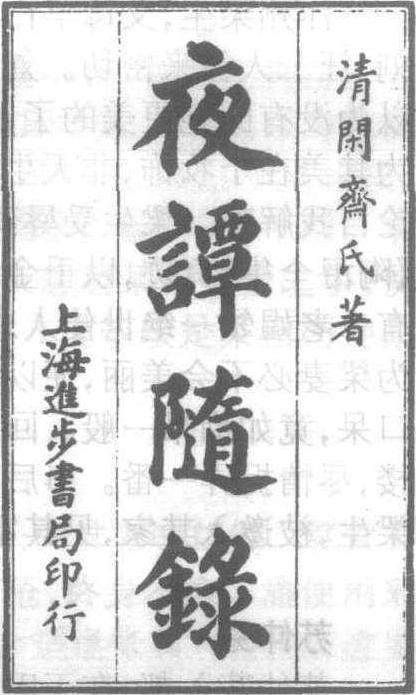 清閑齊氏著
夜譚隨錄
上海進步書局印行